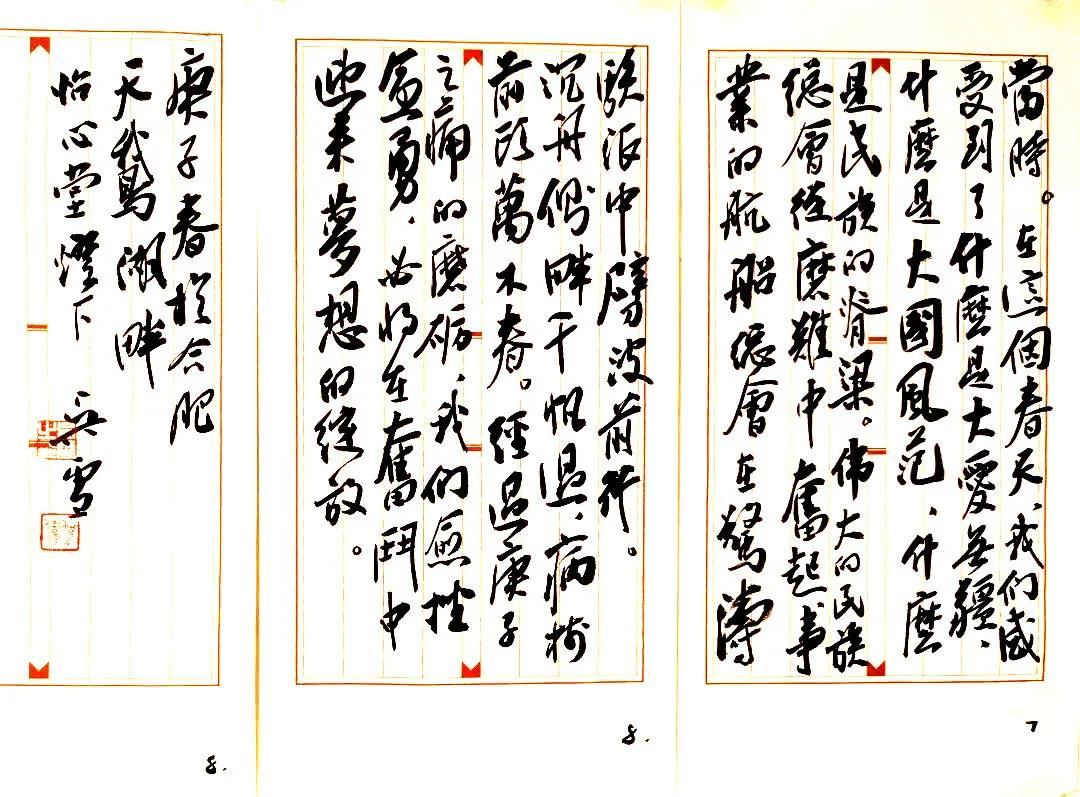 當時。在這個春天、我们感
受到了什麼是大愛無疆、
什麼是大國風范、什麼
是民族的脊梁。偉大的民族
總會從磨難中奮起事
業的航船總會在驚濤
駭浪中劈波前行。
沉舟側畔千帆過、病樹
前頭萬木春。經過庚子
之痛的磨礪、我们愈挫
愈勇、必將在奮鬥中
迎来夢想的绽放。
庚子春於合肥
天鵝湖畔
怡心堂燈下 吳雪
7
8.
8.